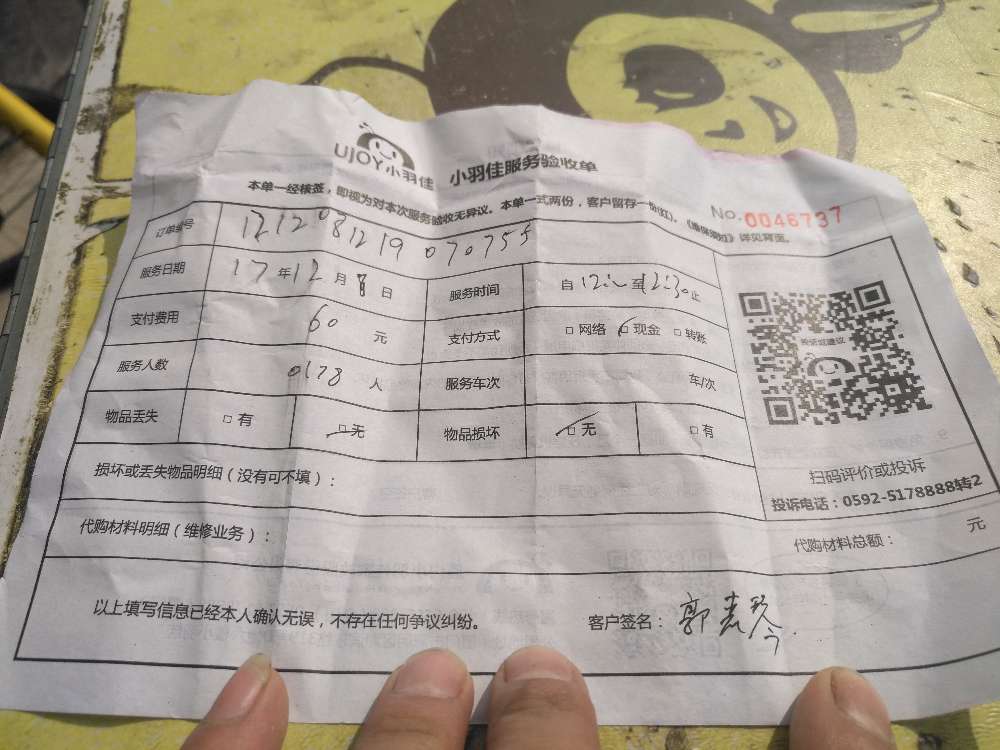 UJOY小羽佳 小羽佳服务验收单
本单一经核签，即视为对本次服务验收无异议。本单一式两份，客户留存一份(红)。《维保须知》详见背面。
No.0046737
订单编号 1212081219070755
服务日期 17年12月8日 服务时间 自12:~至12:30止
支付费用 60元 支付方式 □网络 □现金 □转账
服务人数 0178人 服务车次 车/次
物品丢失 □有 □无 物品损坏 □无 □有
扫码评价或投诉
投诉电话：0592-5178888转2
损坏或丢失物品明细（没有可不填）：
代购材料明细（维修业务）： 代购材料总额： 元
以上填写信息已经本人确认无误，不存在任何争议纠纷。 客户签名：郭